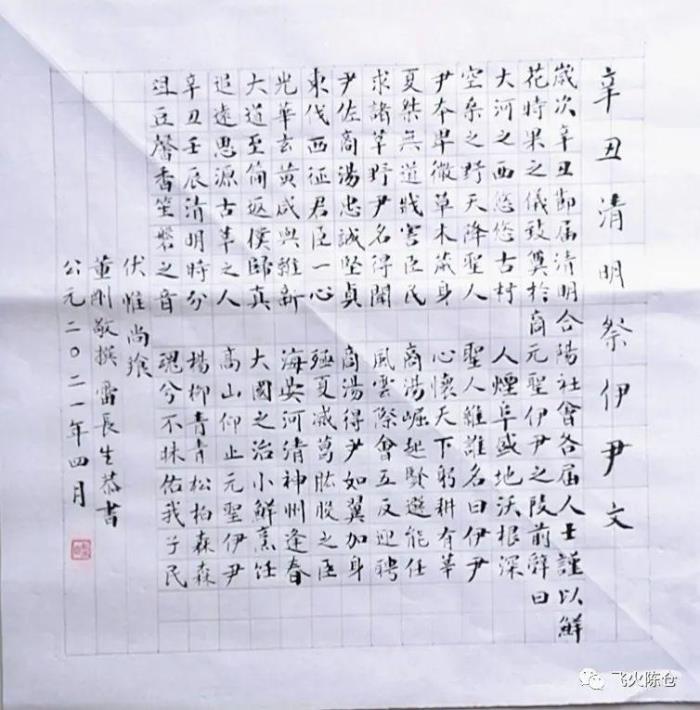 辛丑清明祭伊尹文
歲次辛丑節屆清明合陽社會各屆人士謹以鮮
花時果之儀致奠於商元聖伊尹之陵前辭曰
大河之西悠悠古村 人煙阜盛地沃根深
空桑之野天降聖人 聖人維誰名曰伊尹
尹本卑微草木箴身 心懷天下躬耕有莘
夏桀無道戕害臣民 商湯崛起賢選能任
求諸草野尹名得聞 風雲際會五反迎聘
尹佐商湯忠誠堅貞 商湯得尹如翼加身
東伐西征君臣一心 殛夏滅葛肱股之臣
光華玄黃咸與維新 海晏河清神州逢春
大道至簡返樸歸真 大國之治小鮮烹飪
追遠思源古莘之人 高山仰止元聖伊尹
辛丑壬辰清明時分 楊柳青青松柏森森
俎豆馨香笙磬之音 魂兮不昧佑我子民
伏惟尚饗
董剛敬撰 雷長生恭書
公元二〇二一年四月
飞火陈仓